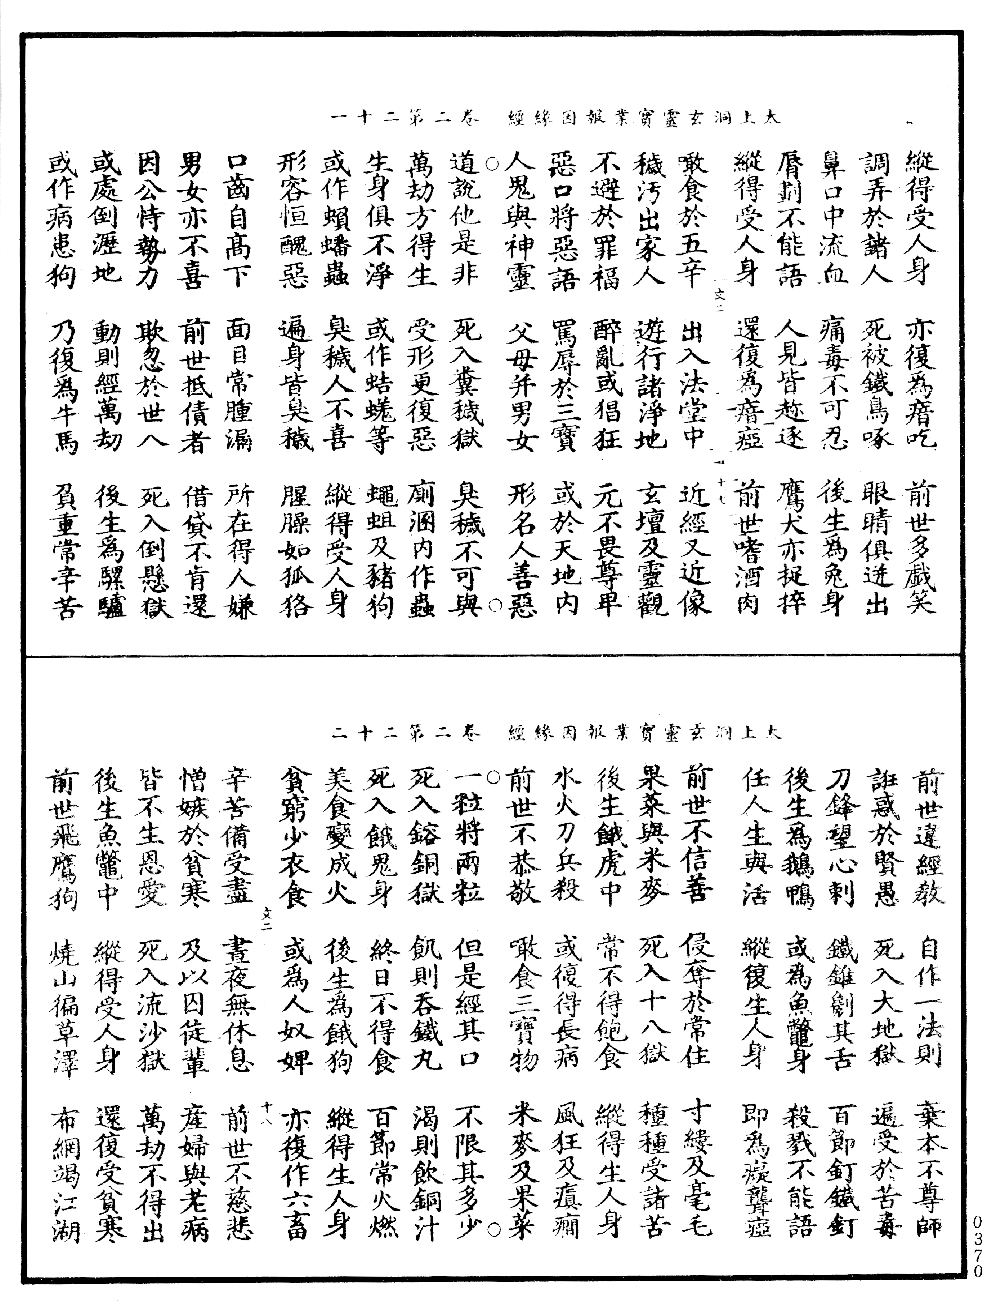 太上洞玄靈寶業報因緣經　卷二第二十一
縱得受人身　亦復爲瘖吃　前世多戲笑
調弄於諸人　死被鐵鳥啄　眼睛俱迸出
鼻口中流血　痛毒不可忍　後生爲兔身
脣割不能語　人見皆趂逐　鷹犬亦捉捽
縱得受人身　還復爲瘖瘂　前世嗜酒肉
文二　十七
噉食於五辛　出入法堂中　近經又近像
穢汚出家人　遊行諸淨地　玄壇及靈觀
不避於罪福　醉亂或猖狂　元不畏尊卑
惡口將惡語　罵辱於三寶　或於天地內
人鬼與神靈　父母并男女　形名人善惡
道說他是非　死入糞穢獄　臭穢不可與
萬劫方得生　受形更復惡　廁溷内作蟲
生身俱不淨　或作蛣蜣等　蠅蛆及豬狗
或作蠙蟠蟲　臭穢人不喜　縱得受人身
形容恒醜惡　遍身皆臭穢　腥臊如狐狢
口齒自高下　面目常腫漏　所在得人嫌
男女亦不喜　前世抵債者　借貸不肯還
因公恃勢力　欺忽於世人　死入倒懸獄
或處倒瀝地　動則經萬劫　後生爲騾驢
或作病患狗　乃復爲牛馬　負重常辛苦
太上洞玄靈寶業報因緣經　卷二第二十二
前世違經教　自作一法則　棄本不尊師
誑惑於賢愚　死入大地獄　遍受於苦毒
刀鋒望心刺　鐵錐劖其舌　百節釘鐵釘
後生爲鵝鴨　或爲魚鼈身　殺戮不能語
任人生與活　縱復生人身　即爲癡聾瘂
前世不信善　侵奪於常住　寸縷及毫毛
果菜與米麥　死入十八獄　種種受諸苦
後生餓虎中　常不得飽食　縱得生人身
水火刀兵殺　或復得長病　風狂及癲癇
前世不恭敬　噉食三寶物　米麥及果菜
一粒將兩粒　但是經其口　不限其多少
死入鎔銅獄　飢則吞鐵丸　渴則飲銅汁
死入餓鬼身　終日不得食　百節常火燃
美食變成火　後生爲餓狗　縱得生人身
貧窮少衣食　或爲人奴婢　亦復作六畜
文二　十八
辛苦備受盡　晝夜無休息　前世不慈悲
憎嫉於貧寒　及以囚徒輩　産婦與老病
皆不生恩愛　死入流沙獄　萬劫不得出
後生魚鼈中　縱得受人身　還復受貧寒
前世飛鷹狗　燒山徧草澤　布網竭江湖
0370